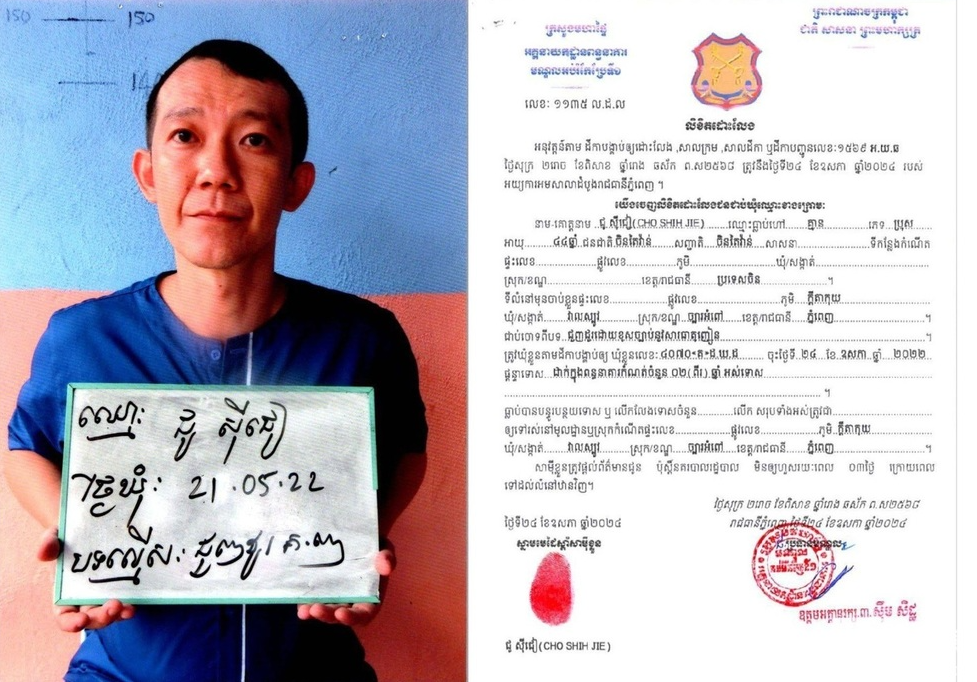 150 150
ឈ្មោះ ជូ ស៊ីជៀ
ថ្ងៃឃុំ: 21.05.22
បទល្មើស: ជួញដូរ គ.ញ
ព្រះរាជាណាចក្រកម្ពុជា
ជាតិ សាសនា ព្រះមហាក្សត្រ
ក្រសួងមហាផ្ទៃ
អគ្គនាយកដ្ឋានពន្ធនាគារ
មណ្ឌលអប់រំកែប្រែទី១
លេខ: ១១៣៥ ល.ដ.ល
លិខិតដោះលែង
អនុវត្តន៍តាម ដីកាបង្គាប់ឲ្យដោះលែង ,សាលក្រម ,សាលដីកា ឬដីកាបញ្ជូនលេខ:១៥៦៩ អ.យ.ឆ
ថ្ងៃសុក្រ ២រោច ខែពិសាខ ឆ្នាំរោង ឆស័ក ព.ស២៥៦៨ ត្រូវនឹងថ្ងៃទី២៤ ខែឧសភា ឆ្នាំ២០២៤ របស់
អយ្យការអមសាលាដំបូងរាជធានីភ្នំពេញ ។
យើងចេញលិខិតដោះលែងជនជាប់ឃុំឈ្មោះខាងក្រោម:
នាម-គោត្តនាម ជូ ស៊ីជៀ(CHO SHIH JIE) ឈ្មោះធ្លាប់ហៅ គ្មាន ភេទ ប្រុស
អាយុ ៤៤ឆ្នាំ ជនជាតិ ចិនតៃវ៉ាន់ សញ្ជាតិ ចិនតៃវ៉ាន់ សាសនា ទីកន្លែងកំណើត
ផ្ទះលេខ ផ្លូវលេខ ភូមិ ឃុំ/សង្កាត់
ស្រុក/ខណ្ឌ ខេត្ត/រាជធានី ប្រទេសចិន ។
ទីលំនៅមុនចាប់ខ្លួនផ្ទះលេខ ផ្លូវលេខ ភូមិ ក្តីតាកុយ
ឃុំ/សង្កាត់ វាលស្បូវ ស្រុក/ខណ្ឌ ច្បារអំពៅ ខេត្ត/រាជធានី ភ្នំពេញ ។
ជាប់ចោទពីបទ ជួញដូរដោយខុសច្បាប់នូវសារធាតុញៀន ។
ត្រូវឃុំខ្លួនតាមដីកាបង្គាប់ឲ្យ ឃុំខ្លួនលេខ: ៤០៧០«គ»ដ.ឃ.ដ ចុះថ្ងៃទី ២៤ ខែ ឧសភា ឆ្នាំ ២០២២
ផ្តន្ទាទោស ដាក់ក្នុងពន្ធនាគារកំណត់ចំនួន ០២(ពីរ)ឆ្នាំ អស់ទោស
។
ធ្លាប់បានបន្ធូរបន្ថយទោស ឬ លើកលែងទោសចំនួន លើក សរុបទាំងអស់ត្រូវជា
ឲ្យទៅរស់នៅមូលដ្ឋានឬស្រុកកំណើតផ្ទះលេខ ផ្លូវលេខ ភូមិ ក្តីតាកុយ
ឃុំ/សង្កាត់ វាលស្បូវ ស្រុក/ខណ្ឌ ច្បារអំពៅ ខេត្ត/រាជធានី ភ្នំពេញ ។
សាមីខ្លួនត្រូវផ្តល់ព័ត៌មានជូន ប៉ុស្តិ៍នគរបាលរដ្ឋបាល មិនឲ្យហួសរយៈពេល ០៣ថ្ងៃ ក្រោយពេល
ទៅដល់លំនៅឋានវិញ។
ថ្ងៃសុក្រ ២រោច ខែពិសាខ ឆ្នាំរោង ឆស័ក ព.ស២៥៦៨
រាជធានីភ្នំពេញ ថ្ងៃទី២៤ ខែឧសភា ឆ្នាំ២០២៤
ថ្ងៃទី២៤ ខែឧសភា ឆ្នាំ២០២៤
ស្នាមមេដៃស្តាំសាមីខ្លួន
ប្រធានមណ្ឌល
ឧត្តមអគ្គានុរក្ស.៣. ស៊ឹម សិដ្ឋ
ជូ ស៊ីជៀ(CHO SHIH JIE)